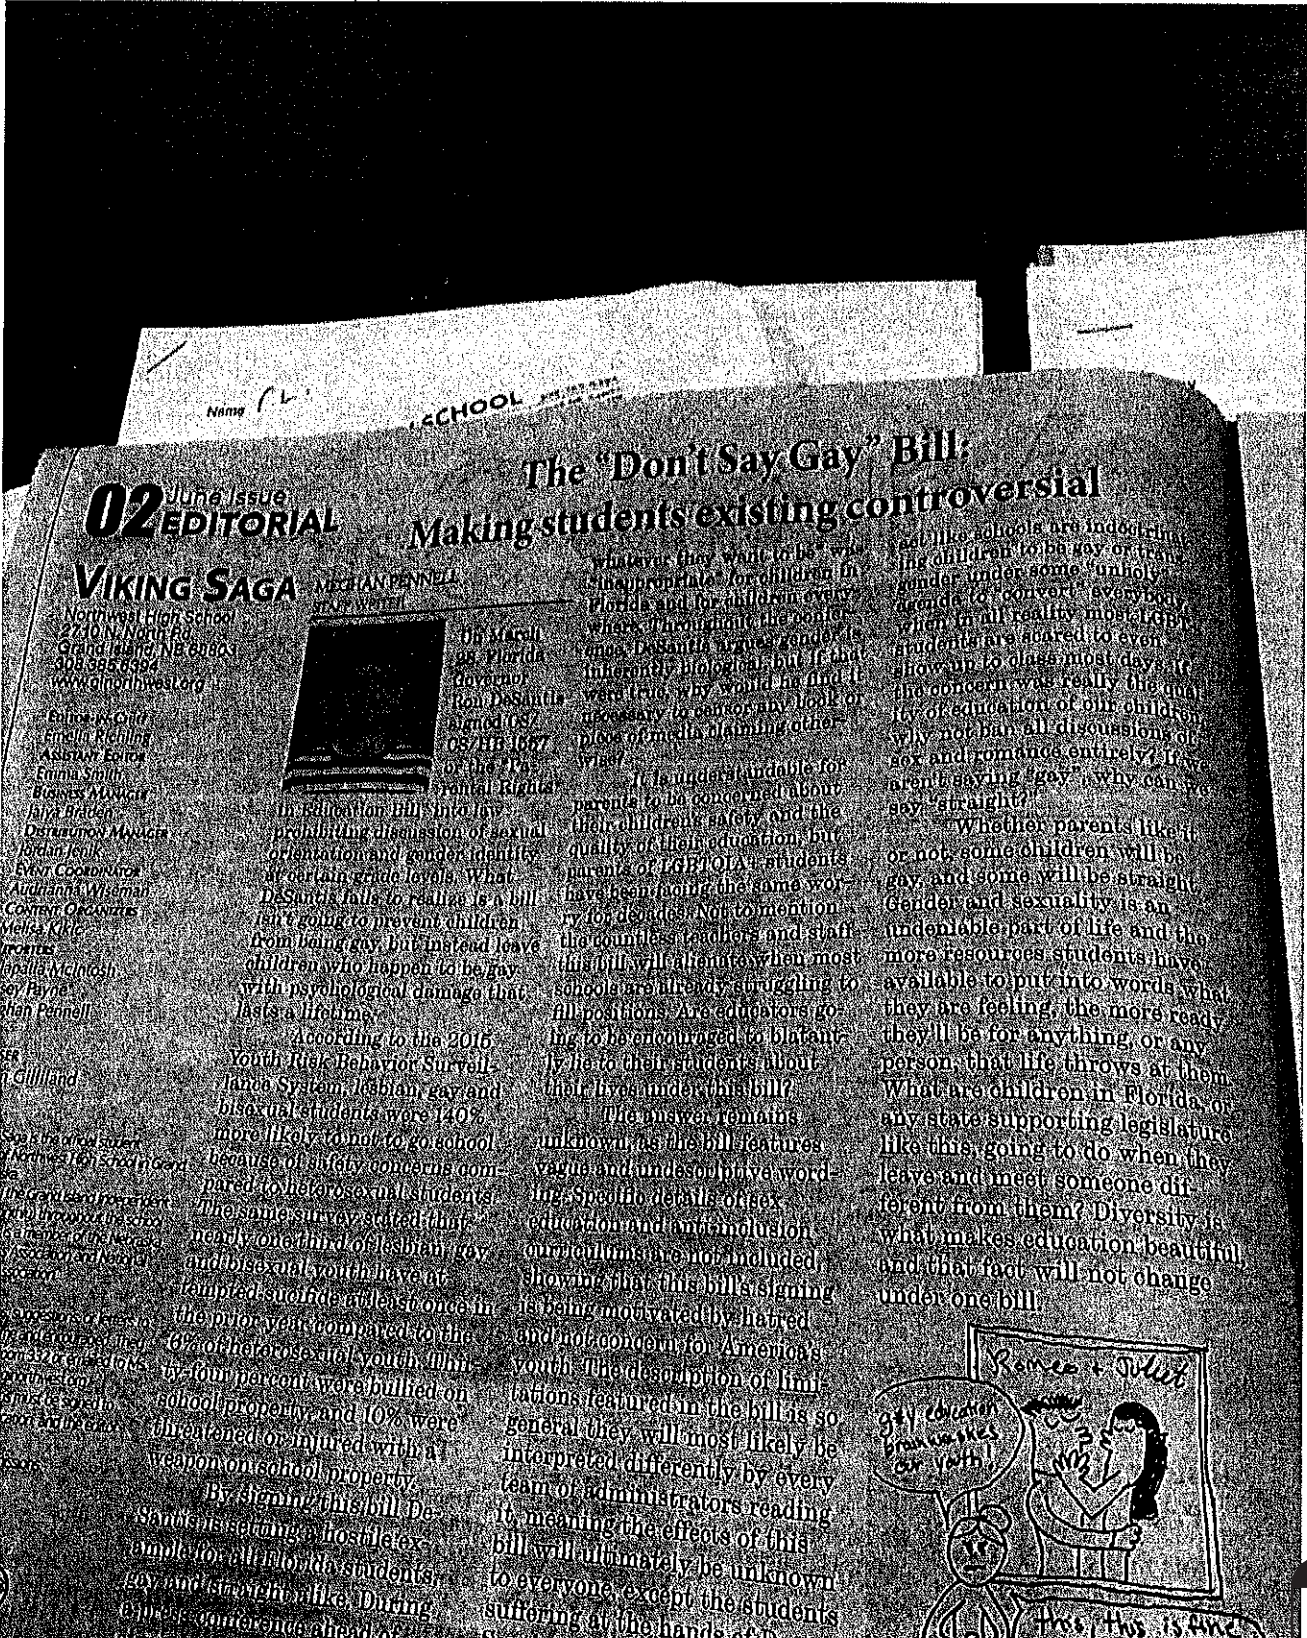 Name
SCHOOL
02 June Issue
EDITORIAL
The "Don't Say Gay" Bill:
Making students existing controversial
VIKING SAGA
Northwest High School
2710 N. North Rd.
Grand Island, NE 68803
308.385.6394
www.ginorthwest.org
EDITOR-IN-CHIEF
Emelia Richling
ASSISTANT EDITOR
Emma Smith
BUSINESS MANAGER
Jaiya Braden
DISTRIBUTION MANAGER
Jordan
EVENT COORDINATOR
Audrianna Wiseman
CONTENT ORGANIZERS
Melisa Kikic
McIntosh
Payne
Pennell
Gilliland
Saga is the official student
of Northwest High School in Grand
the Grand Island Independent
throughout the school
a member of the Nebraska
Association and National
MEGHAN PENNELL
STAFF WRITER
On March
28, Florida
Governor
Ron DeSantis
signed CS/
CS/HB 1557
or the "Pa-
rental Rights
in Education Bill" into law
prohibiting discussion of sexual
orientation and gender identity
at certain grade levels. What
DeSantis fails to realize is a bill
isn't going to prevent children
from being gay, but instead leave
children who happen to be gay
with psychological damage that
lasts a lifetime.
According to the 2015
Youth Risk Behavior Surveil-
lance System, lesbian, gay and
bisexual students were 140%
more likely to not to go school
because of safety concerns com-
pared to heterosexual students.
The same survey stated that
nearly one third of lesbian, gay,
and bisexual youth have at-
tempted suicide at least once in
the prior year compared to the
6% of heterosexual youth. Thir-
ty-four percent were bullied on
school property, and 10% were
threatened or injured with a
weapon on school property.
By signing this bill De-
Santis is setting a hostile ex-
ample for all Florida students,
gay and straight alike. During
a press conference ahead of
whatever they want to be" was
"inappropriate" for children in
Florida and for children every-
where. Throughout the confer-
ence, DeSantis argues gender is
inherently biological, but if that
were true, why would he find it
necessary to censor any book or
piece of media claiming other-
wise?
It is understandable for
parents to be concerned about
their childrens safety and the
quality of their education, but
parents of LGBTQIA+ students
have been facing the same wor-
ry for decades. Not to mention
the countless teachers and staff
this bill will alienate when most
schools are already struggling to
fill positions. Are educators go-
ing to be encouraged to blatant-
ly lie to their students about
their lives under this bill?
The answer remains
unknown, as the bill features
vague and undescriptive word-
ing. Specific details of sex
education and anti-inclusion
curriculums are not included,
showing that this bill's signing
is being motivated by hatred
and not concern for America's
youth. The description of limi-
tations featured in the bill is so
general they will most likely be
interpreted differently by every
team of administrators reading
it, meaning the effects of this
bill will ultimately be unknown
to everyone except the students
suffering at the hands of
act like schools are indoctrinat-
ing children to be gay or trans-
gender under some "unholy"
agenda to "convert" everybody,
when in all reality most LGBT
students are scared to even
show up to class most days. If
the concern was really the qual-
ity of education of our children,
why not ban all discussions of
sex and romance entirely? If we
aren't saying "gay", why can we
say "straight?"
Whether parents like it
or not, some children will be
gay, and some will be straight.
Gender and sexuality is an
undeniable part of life and the
more resources students have
available to put into words what
they are feeling, the more ready
they'll be for anything, or any
person, that life throws at them.
What are children in Florida, or
any state supporting legislature
like this, going to do when they
leave and meet someone dif-
ferent from them? Diversity is
what makes education beautiful,
and that fact will not change
under one bill.
Romeo + Juliet
gay education
brainwashes
our youth!
this, this is fine